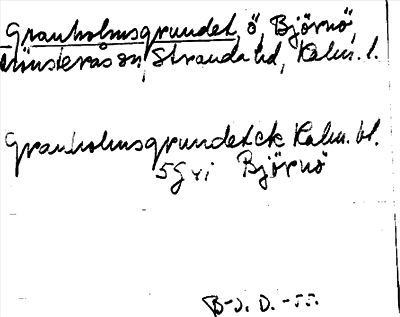 Granholmsgrundet, ö, Björnö,
Mönsterås sn, Stranda hd, Kalm. l.
Granholmsgrundet ek Kalm. bl.
5G vi Björnö
B-J. D. -55.